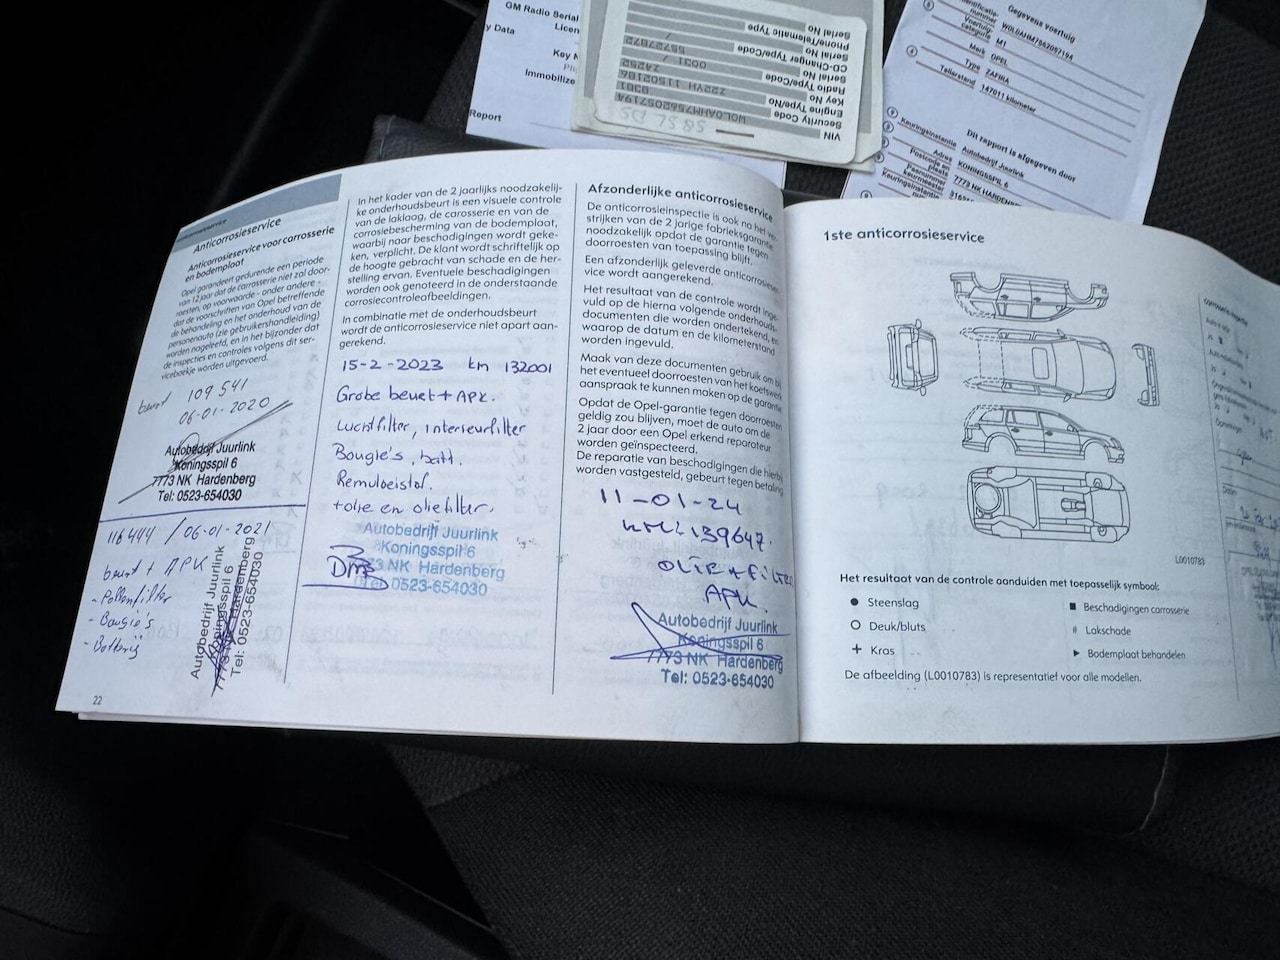 GM Radio Serial
Licen
y Data
Key N
Immobilize
Report
VIN W0L0AHM7562057194
Security Code
Engine Type/No
Key No
Radio Type/Code
Serial No
CD-Changer Type/Code
Serial No
phone/Telematic Type
Serial No
Gegevens voertuig
W0L0AHM7562057194
Voertuig-
categorie M1
Merk OPEL
Type ZAFIRA
Tellerstand 147011 kilometer
Dit rapport is afgegeven door
Keuringsinstantie Autobedrijf Juurlink
Adres KONINGSSPIL 6
Postcode en
plaats 7773 NK HARDENBE
Pasnummer
keurmeester
Keuringsinstantie
Anticorrosieservice
Anticorrosieservice voor carrosserie
en bodemplaat
Opel garandeert gedurende een periode
van 12 jaar dat de carrosserie niet zal door-
roesten, op voorwaarde - onder andere -
dat de voorschriften van Opel betreffende
de behandeling en het onderhoud van de
personenauto (zie gebruikershandleiding)
worden nageleefd, en in het bijzonder dat
de inspecties en controles volgens dit ser-
viceboekje worden uitgevoerd.
beurt 109 541
06-01-2020
Autobedrijf Juurlink
Koningsspil 6
7773 NK Hardenberg
Tel: 0523-654030
116444 / 06-01-2021
beurt + APK
- Pollenfilter
- Bougie's
- Batterij
Autobedrijf Juurlink
Koningsspil 6
7773 NK Hardenberg
Tel: 0523-654030
22
In het kader van de 2 jaarlijks noodzakelij-
ke onderhoudsbeurt is een visuele controle
van de laklaag, de carosserie en van de
corrosiebescherming van de bodemplaat,
waarbij naar beschadigingen wordt geke-
ken, verplicht. De klant wordt schriftelijk op
de hoogte gebracht van schade en de her-
stelling ervan. Eventuele beschadigingen
worden ook genoteerd in de onderstaande
corrosiecontroleafbeeldingen.
In combinatie met de onderhoudsbeurt
wordt de anticorrosieservice niet apart aan-
gerekend.
15-2-2023 km 132001
Grote beurt + APK.
Luchtfilter, interieurfilter
Bougie's, batt.
Remvloeistof.
+olie en oliefilter.
Autobedrijf Juurlink
Koningsspil 6
7773 NK Hardenberg
Tel: 0523-654030
Afzonderlijke anticorrosieservice
De anticorrosieinspectie is ook na het ver-
strijken van de 2 jarige fabrieksgarantie
noodzakelijk opdat de garantie tegen
doorroesten van toepassing blijft.
Een afzonderlijk geleverde anticorrosieser-
vice wordt aangerekend.
Het resultaat van de controle wordt inge-
vuld op de hierna volgende onderhouds-
documenten die worden ondertekend, en
waarop de datum en de kilometerstand
worden ingevuld.
Maak van deze documenten gebruik om bij
het eventueel doorroesten van het koetswerk
aanspraak te kunnen maken op de garantie.
Opdat de Opel-garantie tegen doorroesten
geldig zou blijven, moet de auto om de
2 jaar door een Opel erkend reparateur
worden geïnspecteerd.
De reparatie van beschadigingen die hierbij
worden vastgesteld, gebeurt tegen betaling.
11-01-24
139647.
OLIE + FILTER
APK.
Autobedrijf Juurlink
Koningsspil 6
7773 NK Hardenberg
Tel: 0523-654030
1ste anticorrosieservice
L0010783
Het resultaat van de controle aanduiden met toepasselijk symbool:
● Steenslag
○ Deuk/bluts
+ Kras
■ Beschadigingen carrosserie
# Lakschade
► Bodemplaat behandelen
De afbeelding (L0010783) is representatief voor alle modellen.